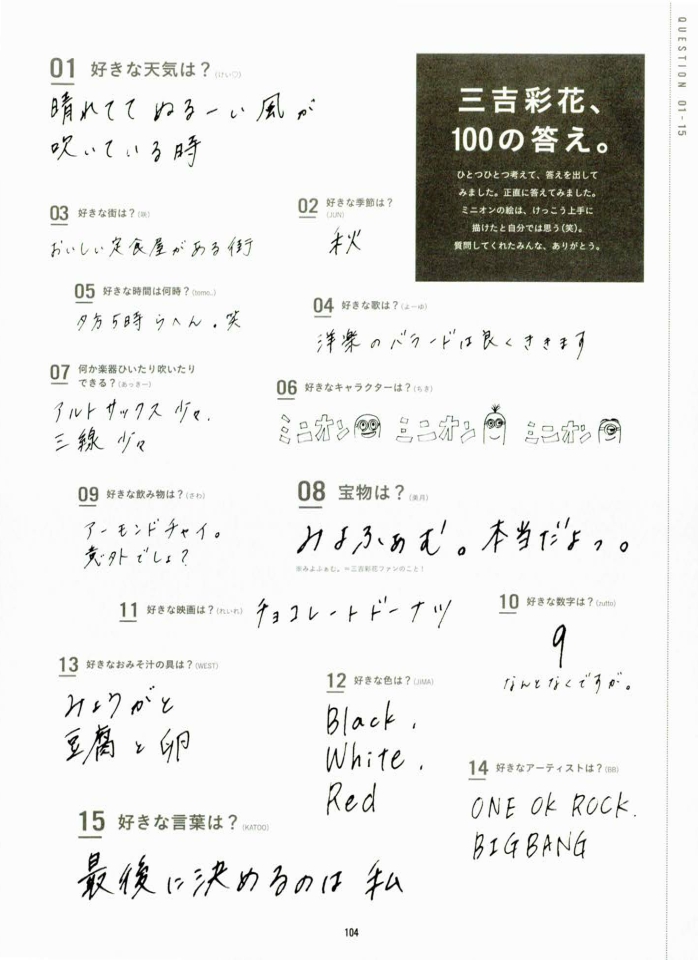 QUESTION 01-15
三吉彩花、
100の答え。
ひとつひとつ考えて、答えを出して
みました。正直に答えてみました。
ミニオンの絵は、けっこう上手に
描けたと自分では思う(笑)。
質問してくれたみんな、ありがとう。
01 好きな天気は?(けい♡)
晴れてて ぬるーい 風が
吹いている時
02 好きな季節は?
(JUN)
秋
03 好きな街は?(咲)
おいしい定食屋がある街
04 好きな歌は?(よーゆ)
洋楽のバラードは良くききます
05 好きな時間は何時?(tomo.)
夕方5時らへん。笑
06 好きなキャラクターは?(ちき)
ミニオン ミニオン ミニオン
07 何か楽器ひいたり吹いたり
できる?(あっきー)
アルトサックス 少々.
三線 少々
08 宝物は?(美月)
みよふぁむ。本当だよっ。
※みよふぁむ。=三吉彩花ファンのこと!
09 好きな飲み物は?(さわ)
アーモンドチャイ。
意外でしょ?
10 好きな数字は?(zutto)
9
なんとなくですが。
11 好きな映画は?(れいれ)
チョコレートドーナツ
12 好きな色は?(JIMA)
Black,
White,
Red
13 好きなおみそ汁の具は?(WEST)
みょうがと
豆腐と卵
14 好きなアーティストは?(BB)
ONE OK ROCK.
BIGBANG
15 好きな言葉は?(KATOQ)
最後に決めるのは 私
104